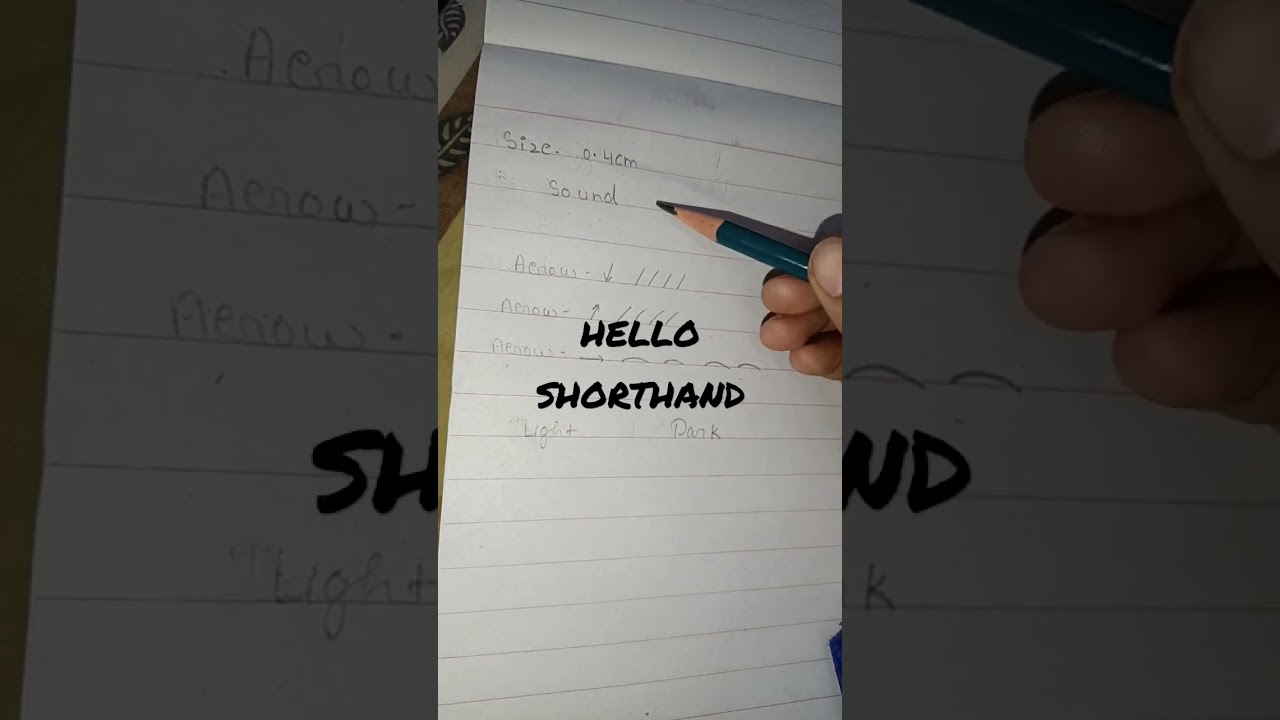 Size. 0.4cm
Sound
Aerow - ↓ ////
Aerow - ↑ ////
HELLO
Aerow - →
SHORTHAND
Light Dark